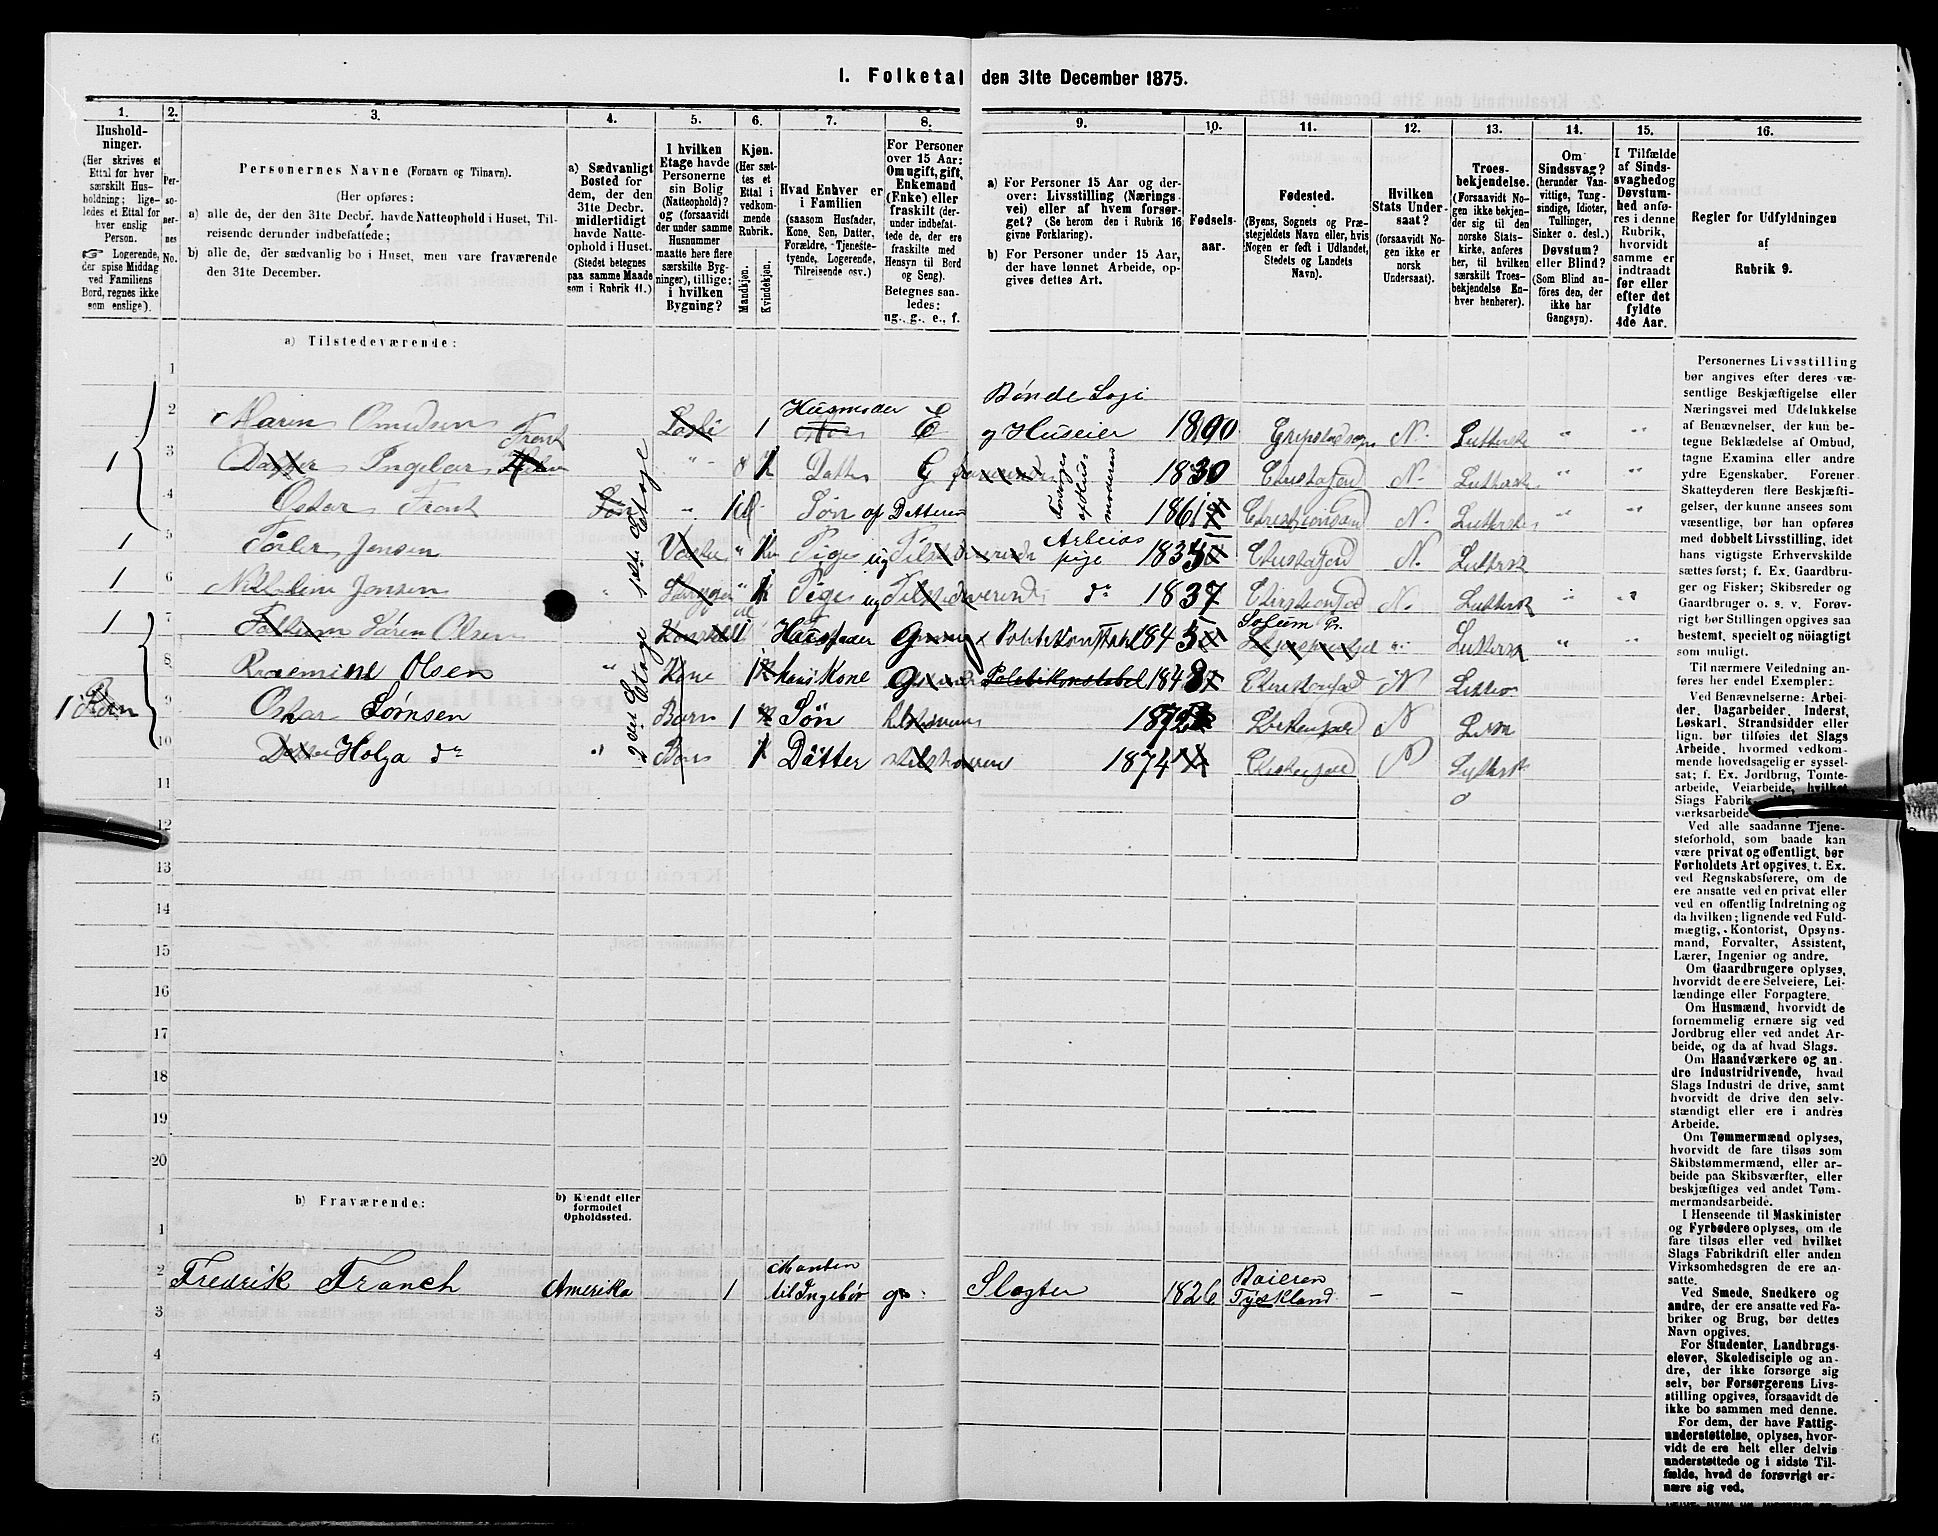 I. Folketal den 31te December 1875.
1. 2. 3. 4. 5. 6. 7. 8. 9. 10. 11. 12. 13. 14. 15. 16.
Hushold-
ninger.
(Her skrives et
Ettal for hver
særskilt Hus-
holdning; lige-
ledes et Ettal for
hver enslig
Person.
☞ Logerende,
der spise Middag
ved Familiens
Bord, regnes ikke
som enslige).
Per-
so-
ner-
nes
No.
Personernes Navne (Fornavn og Tilnavn).
(Her opføres:
a) alle de, der den 31te Decbr. havde Natteophold i Huset, Til-
reisende derunder indbefattede;
b) alle de, der sædvanlig bo i Huset, men vare fraværende
den 31te December.
a) Sædvanligt
Bosted for
dem, der den
31te Decbr.
midlertidigt
havde Natte-
ophold i Huset.
(Stedet betegnes
paa samme Maade
som i Rubrik 11.)
I hvilken
Etage havde
Personerne
sin Bolig
(Natteophold)?
og (forsaavidt
der under samme
Husnummer
maatte høre flere
særskilte Byg-
ninger), tillige:
i hvilken
Bygning?
Kjøn.
(Her sæt-
tes et
Ettal i
vedkom-
mende
Rubrik.
Mandkjøn.
Kvindekjøn.
Hvad Enhver er
i Familien
(saasom Husfader,
Kone, Søn, Datter,
Forældre, Tjeneste-
tyende, Logerende,
Tilreisende osv.)
For Personer
over 15 Aar:
Om ugift, gift,
Enkemand
(Enke) eller
fraskilt (der-
under indbefat-
tede de, der ere
fraskilte med
Hensyn til Bord
og Seng).
Betegnes saa-
ledes:
ug., g., e., f.
a) For Personer 15 Aar og der-
over: Livsstilling (Nærings-
vei) eller af hvem forsør-
get? (Se herom den i Rubrik 16
givne Forklaring).
b) For Personer under 15 Aar,
der have lønnet Arbeide, op-
gives dettes Art.
Fødsels-
aar.
Fødested.
(Byens, Sognets og Præ-
stegjeldets Navn eller, hvis
Nogen er født i Udlandet,
Stedets og Landets
Navn).
Hvilken
Stats Under-
saat?
(forsaavidt No-
gen ikke er
norsk
Undersaat).
Troes-
bekjendelse.
(Forsaavidt No-
gen ikke bekjen-
der sig til den
norske Stats-
kirke, anføres
her, til hvilken
særskilt Troes-
bekjendelse En-
hver henhører).
Om
Sindssvag?
(herunder Van-
vittige, Tung-
sindige, Idioter,
Tullinger,
Sinker o. desl.)
Døvstum?
eller Blind?
(Som Blind an-
føres den, der
ikke har
Gangsyn).
I Tilfælde
af Sinds-
svaghed og
Døvstum-
hed anfø-
res i denne
Rubrik,
hvorvidt
samme er
indtraadt
før eller
efter det
fyldte
4de Aar.
Regler for Udfyldningen
af
Rubrik 9.
a) Tilstedeværende:
1
Bønde Logi
2 Maren Omdsen 1 Husmoder E og Huseier 1800 N. Luthersk " "
1 3 Ingebor Frank Datter G Forsørges af Husmoderen 1830 N. Luthersk " "
4 Oskar Frank Søn af Datteren 1861 N. Luthersk " "
1 5 Jensen Pige ug Arbeids pige 1835 N. Luthersk
1 6 Jensen Pige ug do 1837 N. Luthersk
1 7 Sören Olsen 1 Husfader G 1843 Luthersk " "
8 Olsen Kone 1848 N
1 9 Oskar Sørnsen Barn 1 Søn 1872 N
10 Holga do Datter 1874 N Luthersk
1ste Etage
2den Etage
11
12
13
14
15
16
17
18
19
20
b) Fraværende:
b) Kjendt eller
formodet
Opholdssted.
1
2 Fredrik Franck Amerika 1 Manden til Ingebör g. Slagter 1826 Baieren Tyskland - -
3
4
5
6
Personernes Livsstilling
bør angives efter deres væ-
sentlige Beskjæftigelse eller
Næringsvei med Udelukkelse
af Benævnelser, der kun be-
tegne Beklædelse af Ombud,
tagne Examina eller andre
ydre Egenskaber. Forener
Skatteyderen flere Beskjæfti-
gelser, der kunne ansees som
væsentlige, bør han opføres
med dobbelt Livsstilling, idet
hans vigtigste Erhvervskilde
sættes først; f. Ex. Gaardbru-
ger og Fisker; Skibsreder og
Gaardbruger o. s. v. Forøv-
rigt bør Stillingen opgives saa
bestemt, specielt og nöiagtigt
som muligt.
Til nærmere Veiledning an-
føres her endel Exempler:
Ved Benævnelserne: Arbei-
der, Dagarbeider, Inderst,
Løskarl, Strandsidder eller
lign. bør tilføies det Slags
Arbeide, hvormed vedkom-
mende hovedsagelig er syssel-
sat; f. Ex. Jordbrug, Tomte-
arbeide, Veiarbeide, hvilket
Slags Fabrik-
værksarbeide
Ved alle saadanne Tjene-
steforhold, som baade kan
være privat og offentligt, bør
Forholdets Art opgives, t. Ex.
ved Regnskabsførere, om de
ere ansatte ved en privat eller
ved en offentlig Indretning og
da hvilken; lignende ved Fuld-
mægtig, Kontorist, Opsyns-
mand, Forvalter, Assistent,
Lærer, Ingeniør og andre.
Om Gaardbrugere oplyses,
hvorvidt de ere Selveiere, Lei-
lændinge eller Forpagtere.
Om Husmænd, hvorvidt de
fornemmelig ernære sig ved
Jordbrug eller ved andet Ar-
beide, og da af hvad Slags.
Om Haandværkere og an-
dre Industridrivende, hvad
Slags Industri de drive, samt
hvorvidt de drive den selv-
stændigt eller ere i andres
Arbeide.
Om Tømmermænd oplyses,
hvorvidt de fare tilsøs som
Skibstømmermænd, eller ar-
beide paa Skibsværfter, eller
beskjæftiges ved andet Tøm-
mermandsarbeide.
I Henseende til Maskinister
og Fyrbødere oplyses, om de
fare tilsøs eller ved hvilket
Slags Fabrikdrift eller anden
Virksomhedsgren de ere an-
satte.
Ved Smede, Snedkere og
andre, der ere ansatte ved Fa-
briker og Brug, bør dettes
Navn opgives.
For Studenter, Landbrugs-
elever, Skoledisciple og an-
dre, der ikke forsørge sig
selv, bør Forsørgerens Livs-
stilling opgives, forsaavidt de
ikke bo sammen med denne.
For dem, der have Fattig-
understøttelse, oplyses, hvor-
vidt de ere helt eller delvis
understøttede og i sidste Til-
fælde, hvad de forøvrigt er-
nære sig ved.